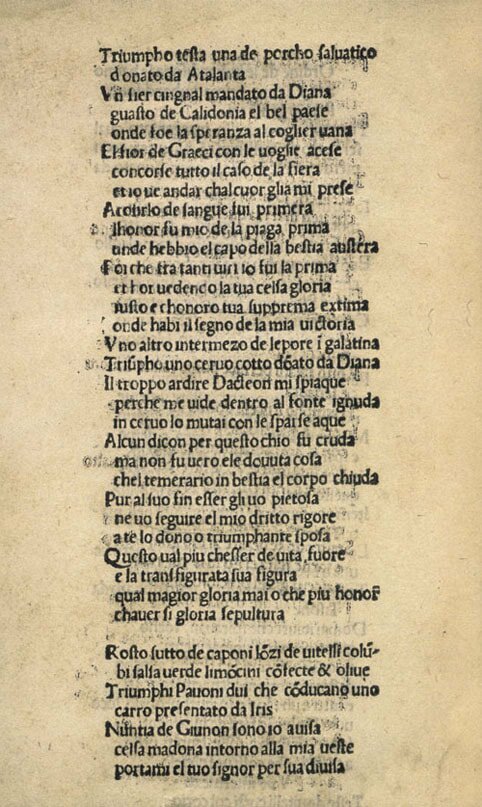 Triumpho testa una de porcho saluatico
donato da Atalanta
Vn fier cingnal mandato da Diana
guasto de Calidonia el bel paese
onde foe la speranza al coglier uana
El fior de Graeci con le uoglie acese
concorse tutto il caso de la fiera
et io ue andar chal cuor glia mi prese
A coburlo de sangue fui primera
lhonor fu mio de la piaga prima
unde hebbio el capo della bestia austera
Poi che fra tanti uiri io fui la prima
et hor uedendo la tua celsa gloria
iusto e chonoro tua supprema extima
onde habi il segno de la mia uictoria
Vno altro intermezo de lepore ī galatina
Triūpho uno ceruo cotto dōato da Diana
Il troppo ardire Dacteon mi spiaque
perche me uide dentro al fonte ignuda
in ceruo lo mutai con le sparse aque
Alcun dicon per questo chio fu cruda
ma non fu uero ele douuta cosa
chel temerario in bestia el corpo chiuda
Pur al suo fin esser gli uo pietosa
ne uo seguire el mio dritto rigore
a te lo dono o triumphante sposa
Questo ual piu chesser de uita fuore
e la transfigurata sua figura
qual magior gloria mai o che piu honor
chauer si gloria sepultura

Rosto sutto de caponi lōzi de uitelli colū-
bi salsa uerde limōcini cōfecte & oliue
Triumphi Pauoni dui che cōducano uno
carro presentato da Iris
Nūntia de Giunon sono io auisa
celsa madona intorno alla mia ueste
portami el tuo signor per sua diuisa